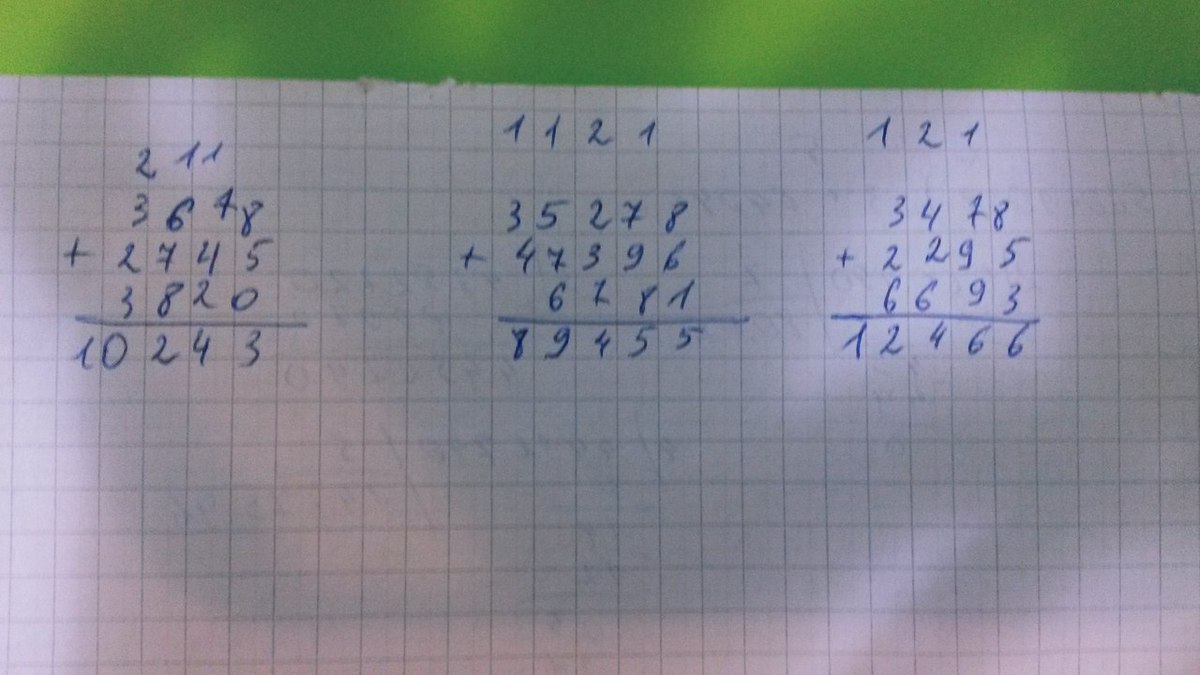 2 1 1
3 6 7 8
+ 2 7 4 5
3 8 2 0
1 0 2 4 3
1 1 2 1
3 5 2 7 8
+ 4 7 3 9 6
6 7 8 1
8 9 4 5 5
1 2 1
3 4 7 8
+ 2 2 9 5
6 6 9 3
1 2 4 6 6